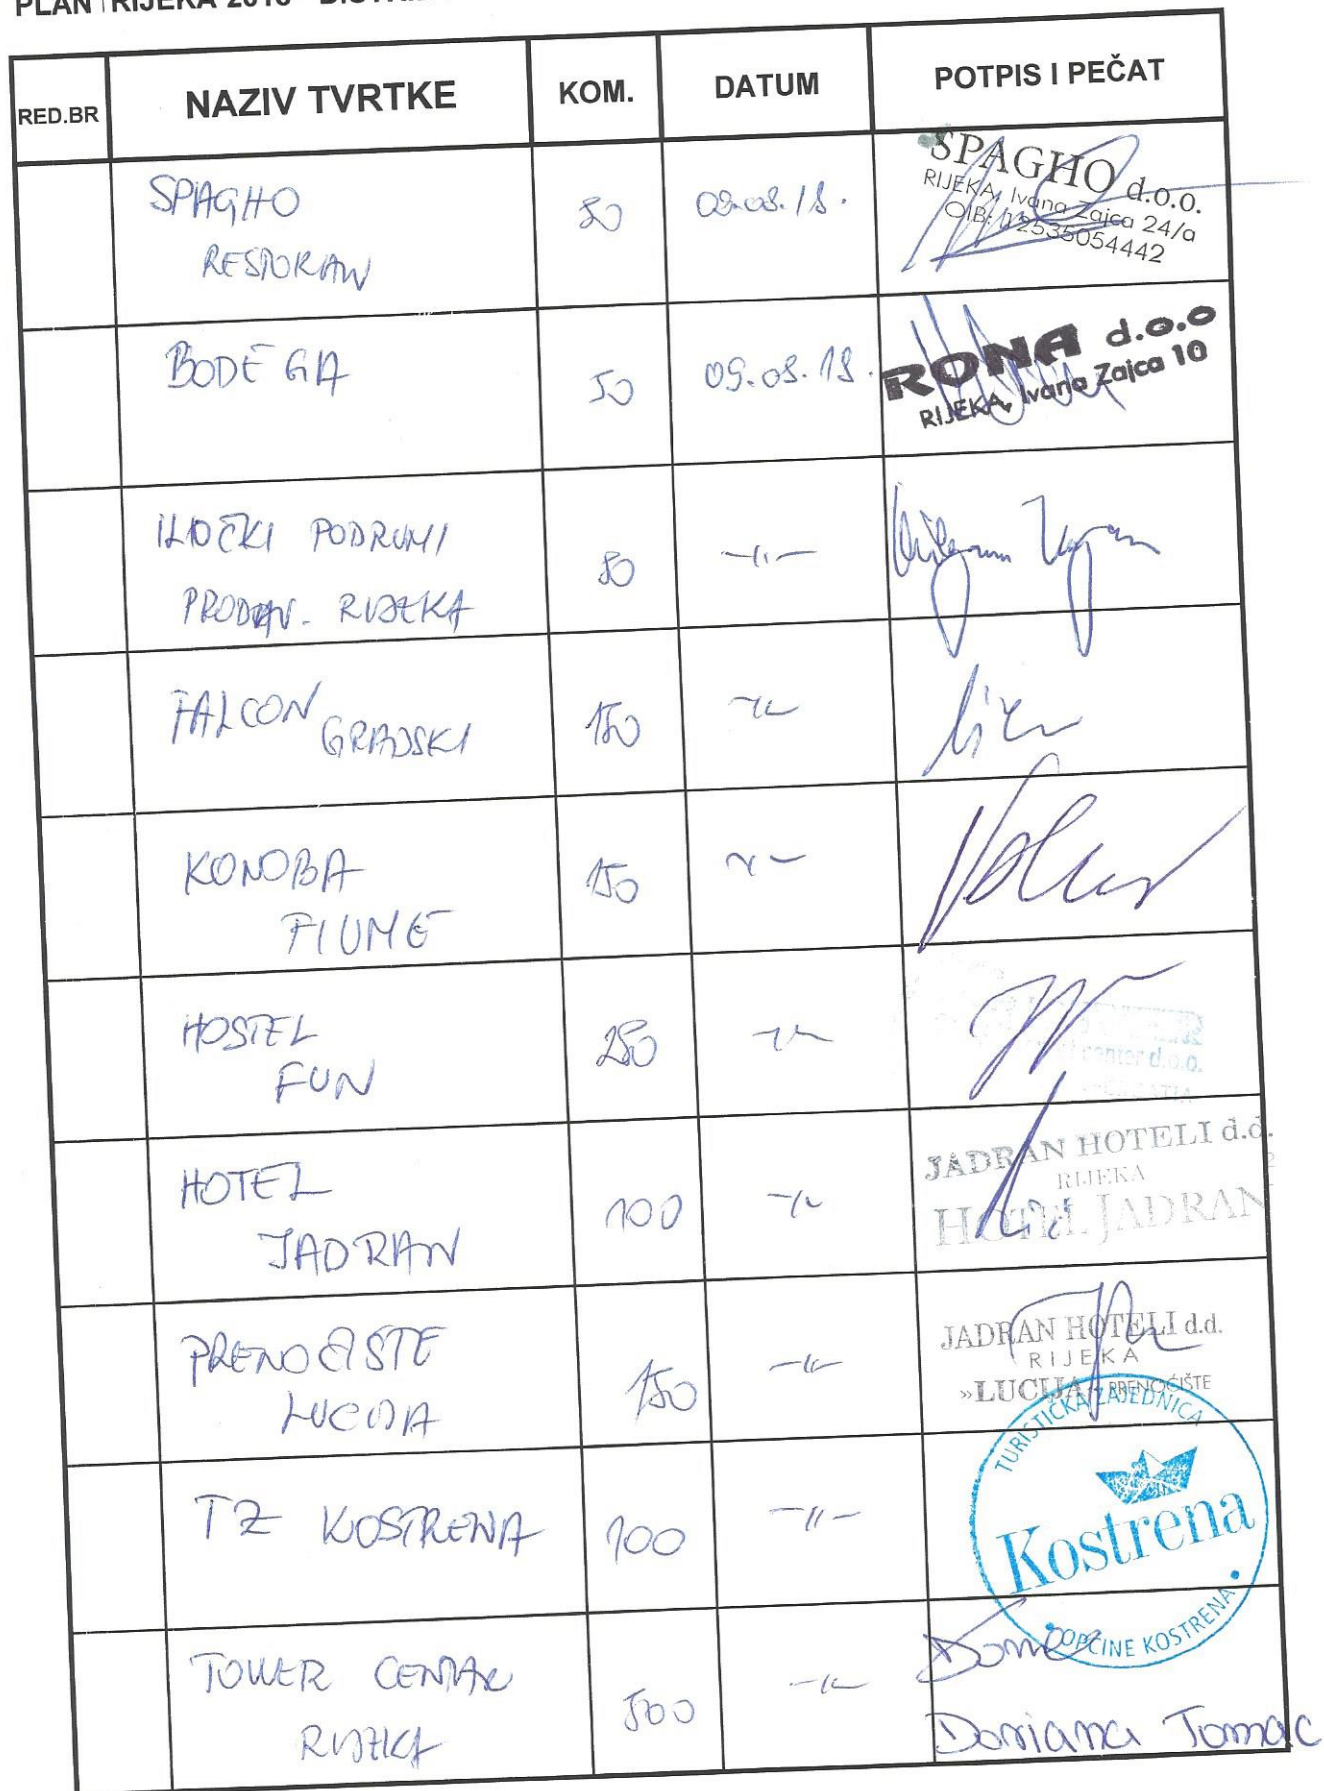 PLAN RIJEKA
RED.BR NAZIV TVRTKE KOM. DATUM POTPIS I PEČAT
SPAGHO
RESTORAN
09.08.18.
SPAGHO d.o.o.
RIJEKA, Ivana Zajca 24/a
OIB: 12535054442
BODEGA
50
09.08.18.
RONA d.o.o
RIJEKA, Ivana Zajca 10
ILOČKI PODRUMI
PRODAV. RIJEKA
-11-
FALCON
GRADSKI
150
-11-
KONOBA
FIUME
150
-11-
HOSTEL
FUN
250
-11-
center d.o.o.
HOTEL
JADRAN
100
-11-
JADRAN HOTELI d.d.
RIJEKA
HOTEL JADRAN
PRENOĆIŠTE
LUCIJA
150
-11-
JADRAN HOTELI d.d.
RIJEKA
»LUCIJA« PRENOĆIŠTE
TZ KOSTRENA
100
-11-
TURISTIČKA ZAJEDNICA
Kostrena
OPĆINE KOSTRENA
TOWER CENTAR
RIJEKA
500
-11-
Doriana Tomac